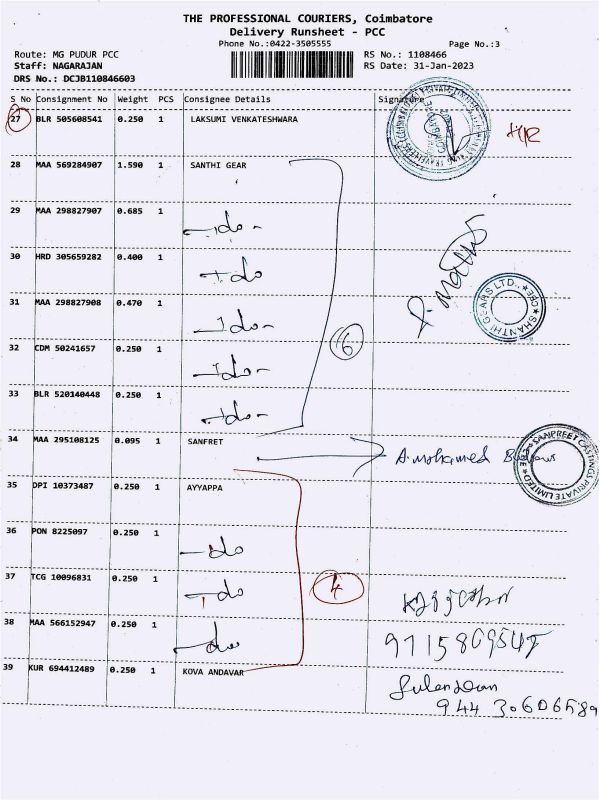 THE PROFESSIONAL COURIERS, Coimbatore
Delivery Runsheet - PCC
Phone No.:0422-3505555 Page No.:3
Route: MG PUDUR PCC RS No.: 1108466
Staff: NAGARAJAN RS Date: 31-Jan-2023
DRS No.: DCJB110846603
S No Consignment No Weight PCS Consignee Details Signature
27 BLR 505608541 0.250 1 LAKSUMI VENKATESHWARA
28 MAA 569284907 1.590 1 SANTHI GEAR
29 MAA 298827907 0.685 1 -do-
30 HRD 305659282 0.400 1 -do
SHANTHI GEARS LTD. CBE
31 MAA 298827908 0.470 1 -do-
32 CDM 50241657 0.250 1 -do-
6
33 BLR 520140448 0.250 1 -do-
34 MAA 295108125 0.095 1 SANFRET A. mohamed
SANPREET CASTINGS PRIVATE LIMITED
35 DPI 10373487 0.250 1 AYYAPPA
36 PON 8225097 0.250 1 -do
37 TCG 10096831 0.250 1 -do
4
38 MAA 566152947 0.250 1 -do
39 KUR 694412489 0.250 1 KOVA ANDAVAR
944 30606589